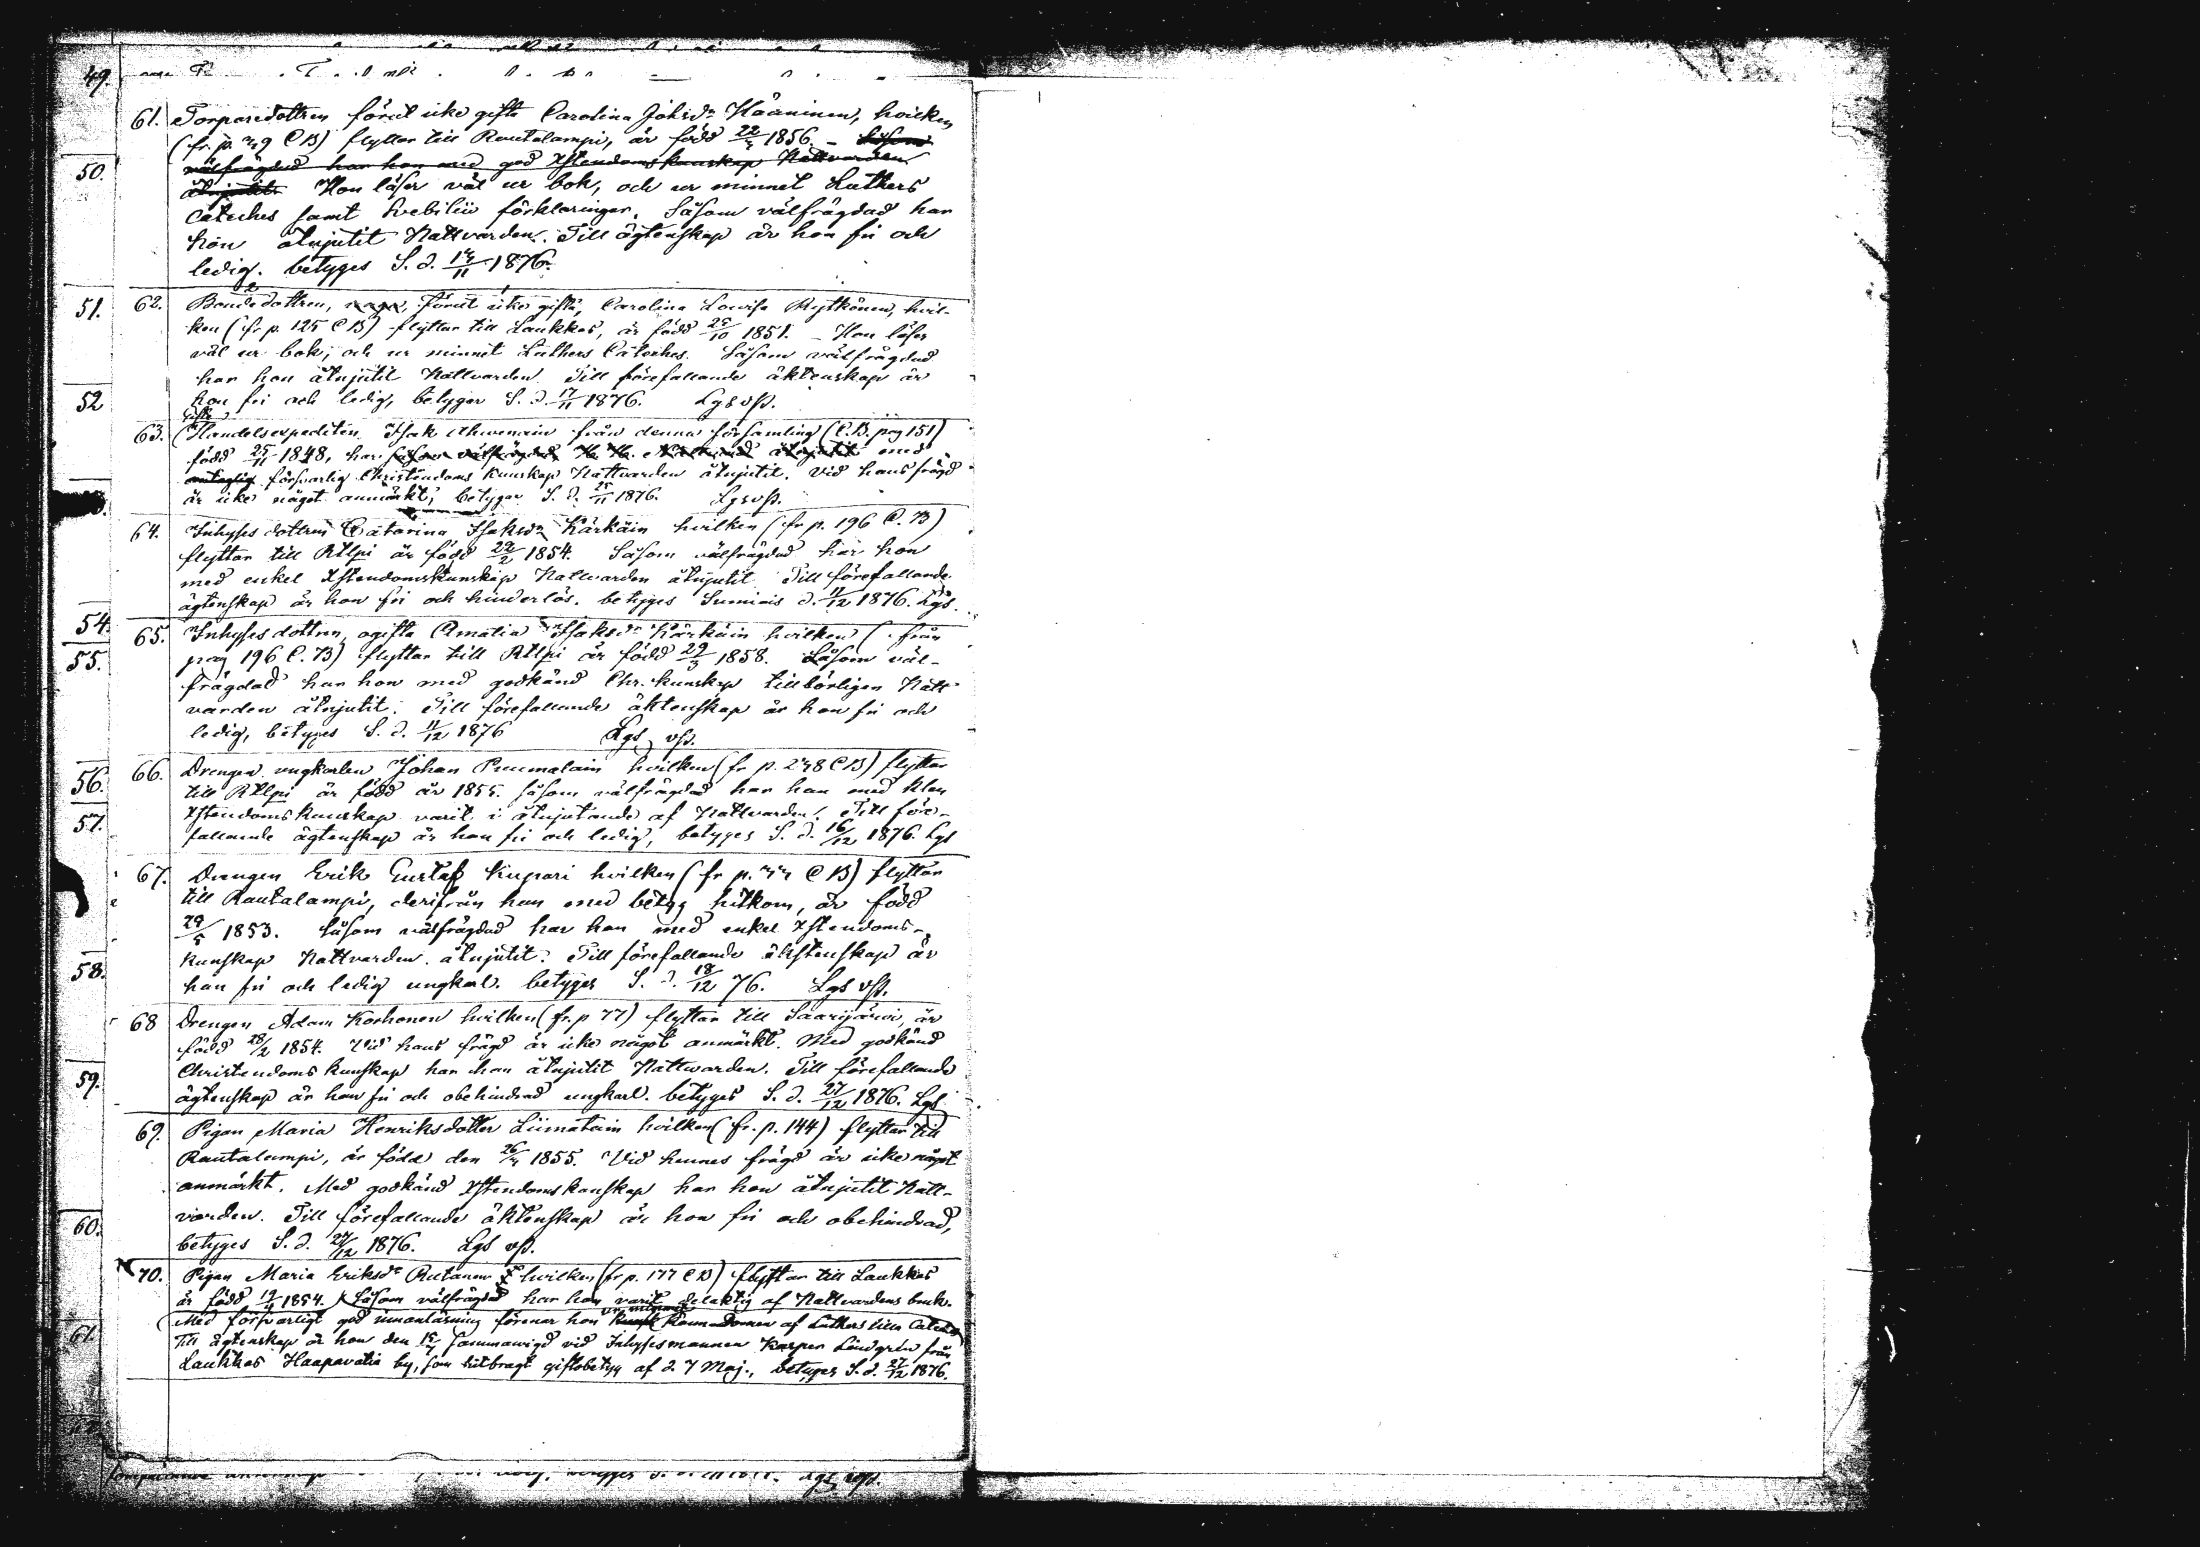 49.
61. Torparedottren förut icke gifta Carolina Johsdr Hääninen, hvilken
(fr. p. 49 C B) flyttar till Rautalampi, är född 22/4 1856. – Såsom
välfrägdad har hon med god Xstendomskunskap Nattvarden
50.
åtnjutit. Hon läser väl ur bok, och ur minnet Luthers
Cateches samt Svebilii förklaringar. Såsom välfrägdad har
hon åtnjutit Nattvarden. Till ägtenskap är hon fri och
ledig. betyges S. d. 14/11 1876.
51.
62. Bondedottren, förut icke gifta, Carolina Lovisa Rytkönen, hvil-
ken (fr p. 125 C B) flyttar till Laukkas, är född 25/10 1851. – Hon läser
väl ur bok, och ur minnet Luthers Cateches. Såsom välfrägdad
har hon åtnjutit Nattvarden. Till förefallande äktenskap är
52
hon fri och ledig, betyger S. d. 17/11 1876. Lgs vp.
Gifte
63. Handelsexpediten Isak Ahvenain från denna församling (C.B. pag 151)
född 25/11 1848, har såsom välfrägdad H. H. Nattvard åtnjutit med
antaglig försvarlig Christendoms kunskap Nattvarden åtnjutit. Vid hans frägd
är icke något anmärkt, betyger S. d. 25/11 1876. Lgs vp.
64. Inhyses dottren Catarina Isaksdr Kärkäin hvilken (fr p. 196 C. B)
flyttar till Rtlpi är född 22/2 1854. Såsom välfrägdad har hon
med enkel Xstendomskunskap Nattvarden åtnjutit. Till förefallande
ägtenskap är hon fri och hinderlös. betyges Sumiais d. 11/12 1876. Lgs.
54.
65. Inhyses dottren, ogifta Amalia Isaksdr Kärkäin hvilken (från
55.
pag 196 C. B) flyttar till Rtlpi är född 29/3 1858. Såsom väl-
frägdad har hon med godkänd Chr. kunskap tillbörligen Natt-
varden åtnjutit. Till förefallande äktenskap är hon fri och
ledig, betyges S. d. 11/12 1876 Lgs vp.
56.
66. Drengen ungkarlen Johan Puumalain hvilken (fr p. 248 C B) flyttar
till Rtlpi är född år 1855. såsom välfrägdad har han med klen
57.
Xstendomskunskap varit i åtnjutande af Nattvarden. Till före-
fallande ägtenskap är han fri och ledig, betyges S. d. 16/12 1876. Lgs
67. Drengen Erik Gustaf Kupari hvilken (fr p. 44 C B) flyttar
till Rautalampi, derifrån han med betyg hitkom, är född
29/5 1853. Såsom välfrägdad har han med enkel Xstendoms-
58.
kunskap Nattvarden åtnjutit. Till förefallande äktenskap är
han fri och ledig ungkarl. betyges S. d. 18/12 76. Lgs vp.
68 Drengen Adam Korhonen hvilken (fr. p 77) flyttar till Saarijärvi, är
född 28/2 1854. Vid hans frägd är icke något anmärkt. Med godkänd
59.
Christendoms kunskap har han åtnjutit Nattvarden. Till förefallande
ägtenskap är han fri och obehindrad ungkarl. betyges S. d. 27/12 1876. Lgs
69. Pigan Maria Henriksdotter Liimatain hvilken (fr. p. 144) flyttar till
Rautalampi, är född den 26/4 1855. Vid hennes frägd är icke något
anmärkt. Med godkänd Xstendomskunskap har hon åtnjutit Natt-
60.
varden. Till förefallande äktenskap är hon fri och obehindrad,
betyges S. d. 27/12 1876. Lgs vp.
70. Pigan Maria Eriksdr Rutanen hvilken (fr p. 177 C B) flyttar till Laukkas
är född 19/4 1854. Såsom välfrägdad har hon varit delaktig af Nattvardens bruk.
61.
Med försvarligt god innanläsning förenar hon ur minnet kännedomen af Luthers lilla Cateches
Till ägtenskap är hon den 15/7 sammanvigd vid Inhysesmannen Kasper Lindgrén från
Laukkas Haapavatia by, som hitbragt giftobetyg af d. 7 Maj., betyges S. d. 27/12 1876.